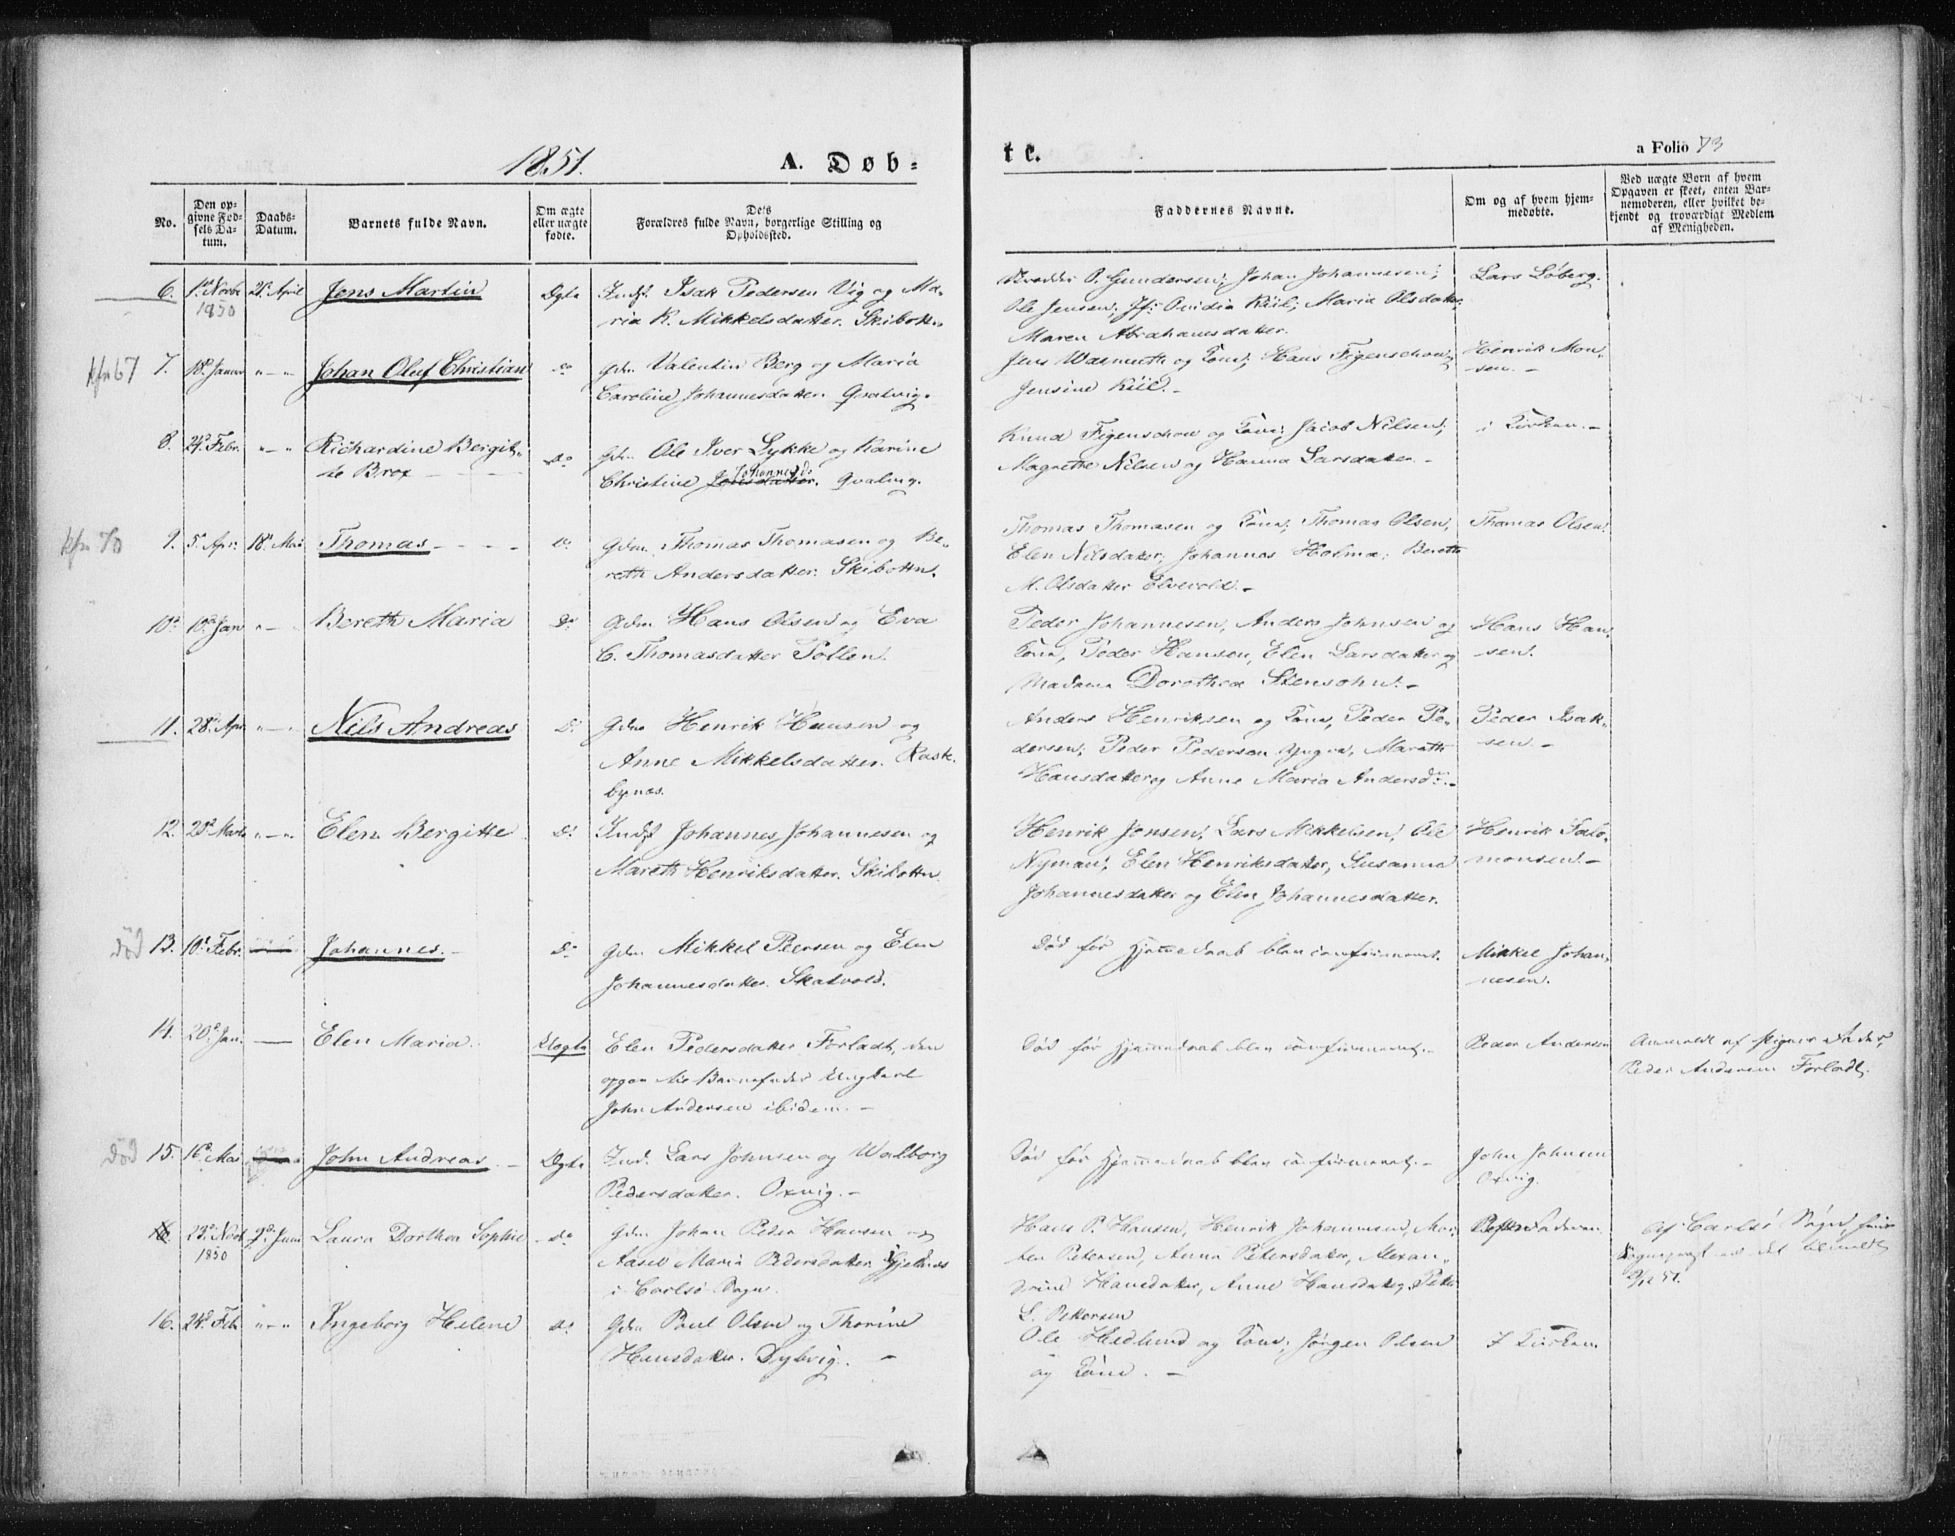 1851.
A. Døb-
te.
a Folio 73
No.
Den op-
givne Fød-
sels Da-
tum.
Daabs-
Datum.
Barnets fulde Navn.
Om ægte
eller uægte
fødte.
Dets
Forældres fulde Navn, borgerlige Stilling og
Opholdssted.
Faddernes Navne.
Om og af hvem hjem-
medøbte.
Ved uægte Born af hvem
Opgaven er skeet, enten Bar-
nemoderen, eller hvilket be-
kjendt og troværdigt Medlem
af Menigheden.
6. 1ste Novbr 1850 21. April Jens Martin Ægte
Indst Isak Pedersen Vig og Ma-
ria K. Mikkelsdatter. Skibotn.
P. Gundersen; Johan Johannesen;
Ole Jensen; Jfr: Ovidia Kiil; Maria Olsdatter,
Maren Abrahamsdatter.
Lars Löberg.
kfr 67 7. 18de Januar " - " Johan Oluf Christian do
Gdm Valentin Berg og Maria
Caroline Johannesdatter. Qvalvig.
Jens Warmuth og Kone; Hans Figenschou;
Jensine Kiil. -
Henrik Mon-
sen. -
8. 24de Febr. " - " Richardine Bergit-
te Brox Do
Gdm Ole Iver Lykke og Karine
Christine Johannesd. Jensdatter. Qvalvig.
Knud Figenschou og Kone; Jacob Nilsen;
Magrethe Nilsen og Hanna Larsdatter. -
i Kirken. -
kfr 70 9. 5. Apr. 18de Mai Thomas do
Gdm. Thomas Thomasen og Be-
reth Andersdatter. Skibottn.
Thomas Thomasen og Kone; Thomas Olsen,
Elen Nilsdatter; Johannes Holma; Bereth
M. Olsdatter Elvevold. -
Thomas Olsen.
10de 10de Jan " - Bereth Maria Do
Gdm Hans Olsen og Eva
C. Thomasdatter Pollen.
Peder Johannesen, Anders Johnsen og
Kone, Peder Hansen, Elen Larsdatter og
Madame Dorothea Stensohn. -
Hans Han-
sen.
11. 28de Apr. " - " Nils Andreas Do
Gdm Henrik Hansen og
Anne Mikkelsdatter. Rask-
bynæs.
Anders Henriksen og Kone, Peder Pe-
dersen; Peder Pedersen Marath
Hansdatter og Anne Maria Andersdr. -
Peder Isak-
sen. -
12. 28de Marts " - " Elen Bergitte Do
Indst Johannes Johannesen og
Mareth Henriksdatter. Skibottn
Henrik Jonsen, Lars Mikkelsen, Ole
Nyman; Elen Henriksdatter, Susanna
Johannesdatter og Elen Johannesdatter.
Henrik Salo-
monsen. -
död 13. 10de Febr. Johannes. - Do
Gdm Mikkel Persen og Elen
Johannesdatter. Skatvold.
Död för Hjemmedaab blev confirmeret.
Mikkel Johan-
nesen.
14. 20de Jan. Elen Maria. Uægte
Elen Pedersdatter Forladt, den
opgivne Barnefader Ungkarl
John Andersen ibidem. -
Död för Hjemmedaab blev confirmeret. -
Peder Andersen
Anmeldt af Pigens Fader,
Peder Andersen Forladt.
död 15. 16de Mai John Andreas. - Ægte
Ind. Lars Johnsen og Walborg
Pedersdatter. Oxvig. -
Död för Hjemmedaab blev confirmeret. -
John Johnsen
Oxvig.
16. 23de Novb 1850 Juni Laura Dorthea Sophie Do
Gdm Johan Peter Hansen og
Aasel Maria Pedersdatter
i Carlsö Sogn.
Hans P. Hansen, Henrik Johannesen, Mor-
ten Petersen, Anna Petersdatter, Alexan-
drine Hansdatter, Anne Hansdatter, Peder
L. Petersen
Faderen
Af Carlsö Sogn,
Sognepræst det tilmeldt
51.
16. 24de Feb. " - " Ingeborg Helene Do
Gdm Poul Olsen og Thorine
Hansdatter. Dybvig. -
Ole Hedlund og Kone; Jørgen Olsen
og Kone. -
I Kirken.